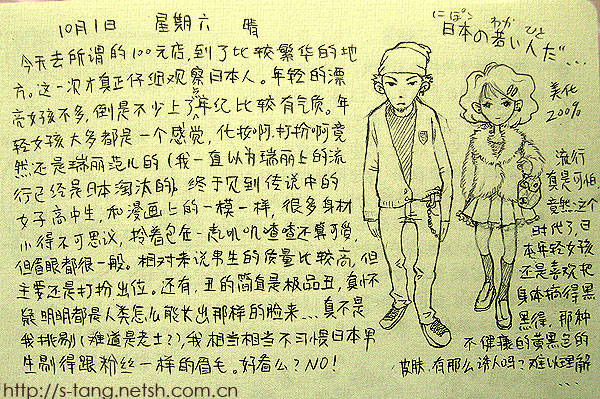 10月1日 星期六 晴
今天去所谓的100元店,到了比较繁华的地
方。这一次才真正仔细观察日本人。年轻的漂
亮女孩不多,倒是不少上了年纪比较有气质。年
轻女孩大多都是一个感觉,化妆啊打扮啊竟
然还是瑞丽范儿的(我一直以为瑞丽上的流
行已经是日本淘汰的)。终于见到传说中的
女子高中生,和漫画上的一模一样,很多身材
小得不可思议,拎着包在一起叽叽喳喳还真可爱,
但眉眼都很一般。相对来说男生的质量比较高,但
主要还是打扮出位。还有,丑的简直是极品丑,真怀
疑明明都是人类怎么能长出那样的脸来…真不是
我挑剔(难道是老土?),我相当相当不习惯日本男
生剔得跟粉丝一样的眉毛。好看么?NO!
にぽん わか ひと
日本の若い人だ…
美化
200%
流行
真是可怕,
竟然这个
时代了,日
本年轻女孩
还是喜欢把
身体搞得黑
黑得,那种
不健康的黄黑色的
皮肤,有那么诱人吗?难以理解
…
http://s-tang.netsh.com.cn